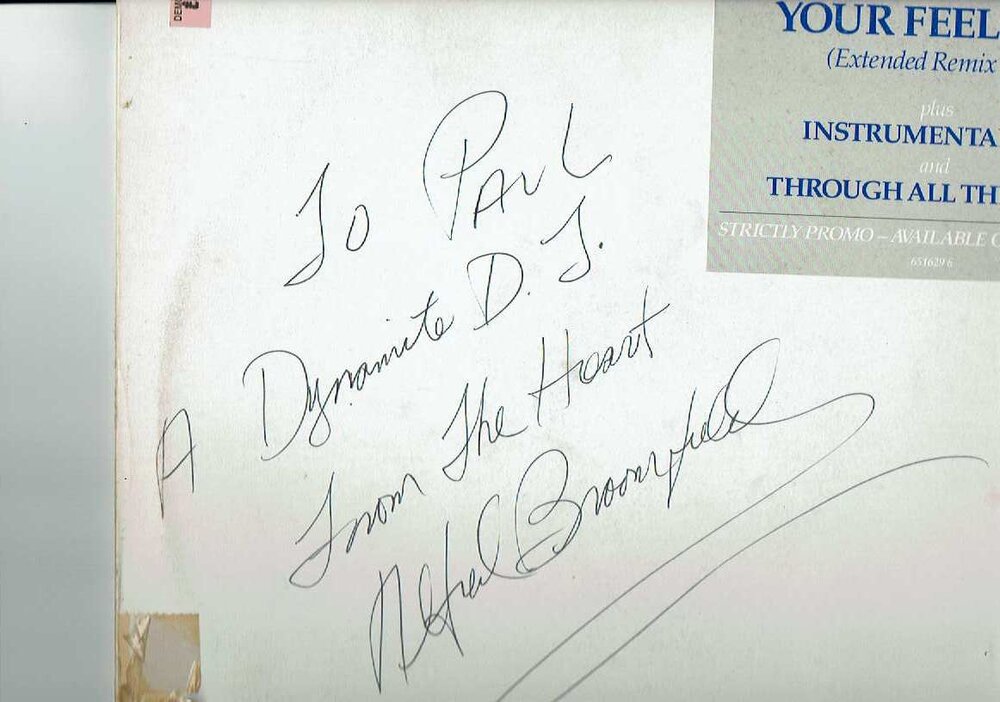 DEM
YOUR FEEL
(Extended Remix
plus
INSTRUMENTA
and
THROUGH ALL TH
STRICTLY PROMO – AVAILABLE
651629 6
To PAUL
A Dynamite D.J.
From The Heart
Alfred Broomfield